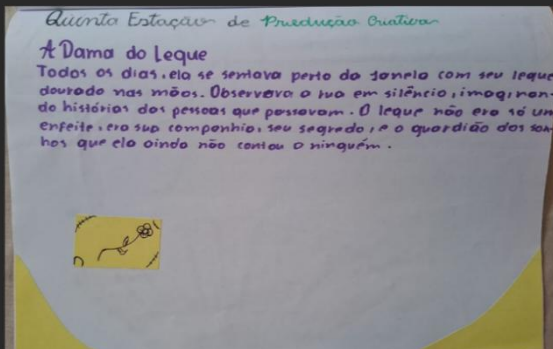 Quinta Estação de Pruedução Criativa
A Dama do Leque
Todos os dias, ela se sentava perto da janela com seu leque
dourado nas mãos. Observava a rua em silêncio, imaginan-
do histórias das pessoas que passavam. O leque não era só um
enfeite, era sua companhia, seu segredo, e o guardião dos son-
hos que ela ainda não contou a ninguém.